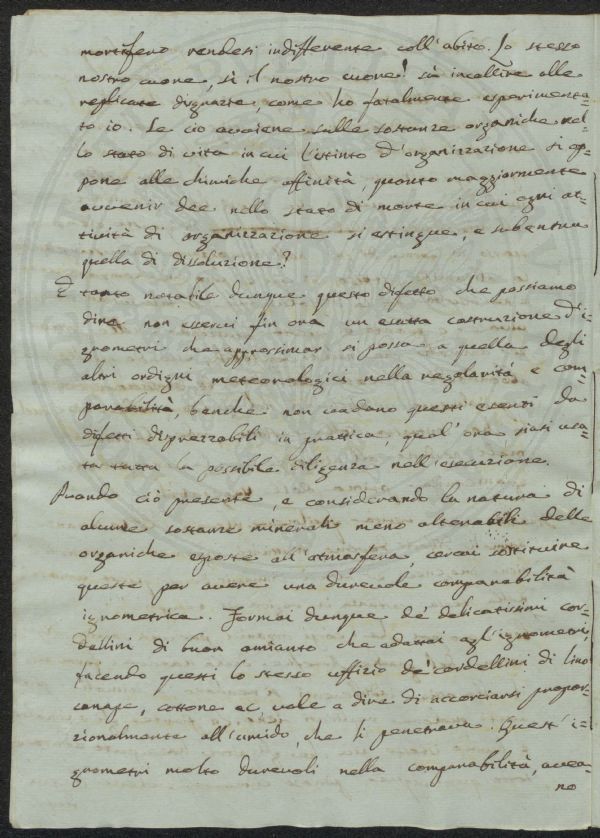 mortifero rendesi indifferente coll'abito. Lo stesso
nostro cuore, sì il nostro cuore! sà incallire alle
replicate disgrazie, come ho fatalmente esperimenta-
to io. Se ciò avviene sulle sostanze organiche nel-
lo stato di vita in cui l'istinto d'organizzazione si op-
pone alle chimiche affinità, quanto maggiormente
avvenir dee nello stato di morte in cui ogni at-
tività di organizzazione si estingue, e subentra
quella di dissoluzione?
È tanto notabile dunque questo difetto che possiamo
dire non esservi fin ora un esatta costruzione d'i-
grometri che approssimar si possa a quella degli
altri ordigni meteorologici nella regolarità e com-
parabilità, benche non vadano questi esenti da
difetti disprezzabili in prattica, qual'ora siasi usa-
ta tutta la possibile diligenza nell'esecuzione.
Avendo ciò presente, e considerando la natura di
alcune sostanze minerali meno alterabili delle
organiche esposte all'atmosfera, cercai sostituire
queste per avere una durevole comparabilità
igrometrica. Formai dunque de' delicatissimi cor-
dellini di buon amianto che adattai agl'igrometri,
facendo questi lo stesso uffizio de' cordellini di lino
canape, cottone ec. vale a dire di accorciarsi propor-
zionalmente all'umido, che li penetrava. Quest'i-
grometri molto durevoli nella comparabilità, avea-
no